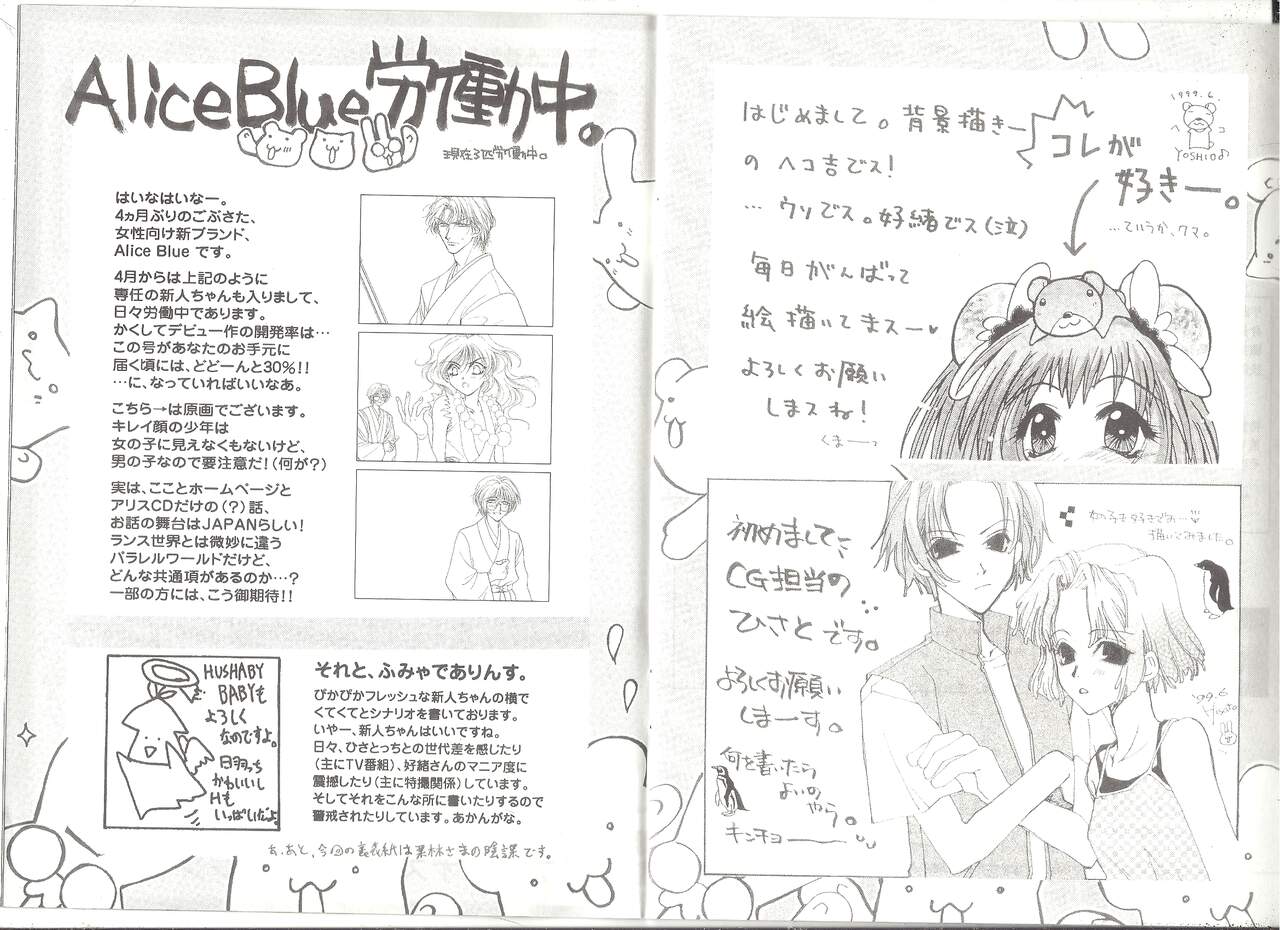 AliceBlue労働中。
現在3匹労働中。
はいなはいなー。
4ヵ月ぶりのごぶさた、
女性向け新ブランド、
Alice Blue です。
4月からは上記のように
専任の新人ちゃんも入りまして、
日々労働中であります。
かくしてデビュー作の開発率は…
この号があなたのお手元に
届く頃には、どどーんと30%!!
…に、なっていればいいなあ。
こちら→は原画でございます。
キレイ顔の少年は
女の子に見えなくもないけど、
男の子なので要注意だ!(何が?)
実は、こことホームページと
アリスCDだけの(?)話、
お話の舞台はJAPANらしい!
ランス世界とは微妙に違う
パラレルワールドだけど、
どんな共通項があるのか…?
一部の方には、こう御期待!!
HUSHABY
BABYも
よろしく
なのですよ。
日羽っち
かわいいし
Hも
いっぱいだよ
それと、ふみゃでありんす。
ぴかぴかフレッシュな新人ちゃんの横で
くてくてとシナリオを書いております。
いやー、新人ちゃんはいいですね。
日々、ひさとっちとの世代差を感じたり
(主にTV番組)、好緒さんのマニア度に
震撼したり(主に特撮関係)しています。
そしてそれをこんな所に書いたりするので
警戒されたりしています。あかんがな。
あ、あと、今回の裏表紙は黒林さまの陰謀です。
はじめまして。背景描きー
の ヘコ吉でス!
… ウソでス。好緒でス(泣)
毎日がんばって
絵描いてまスー♥
よろしくお願い
しまスね!
くまーっ
コレが
好きー。
…ていうか、クマ。
1999.6.
ヘコ
YOSHIO♪
初めまして、
CG担当の
ひさとです。
よろしくお願い
しまーす。
何を書いたら
よいの
やら。
キンチョーーー
女の子も好きでお…
描いてみました。
'99.6
Hisato